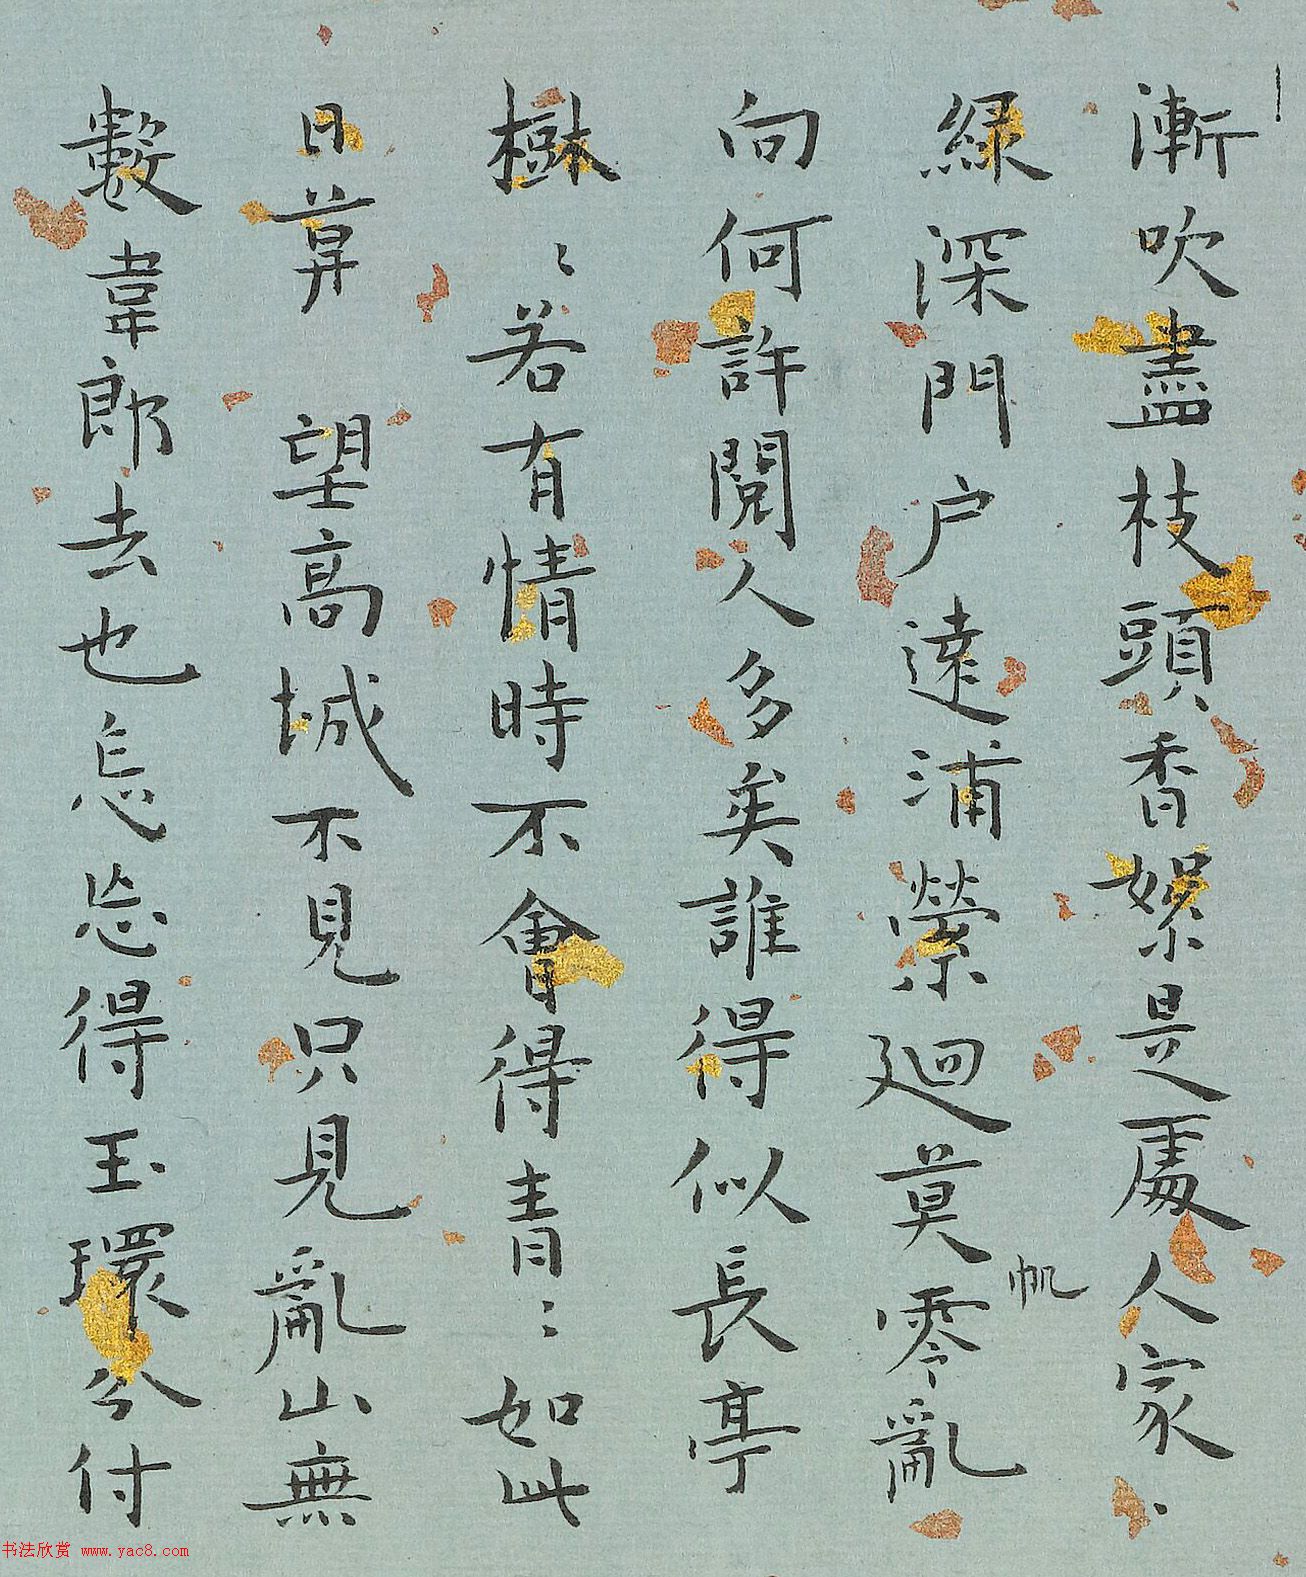 漸吹盡枝頭香絮是處人家〻
綠深門户遠浦縈迴莫零亂
帆
向何許閱人多矣誰得似長亭
樹〻若有情時不會得青〻如此
日算 望高城不見只見亂山無
數韋郎去也怎忘得玉環分付
书法欣赏 www.yac8.com